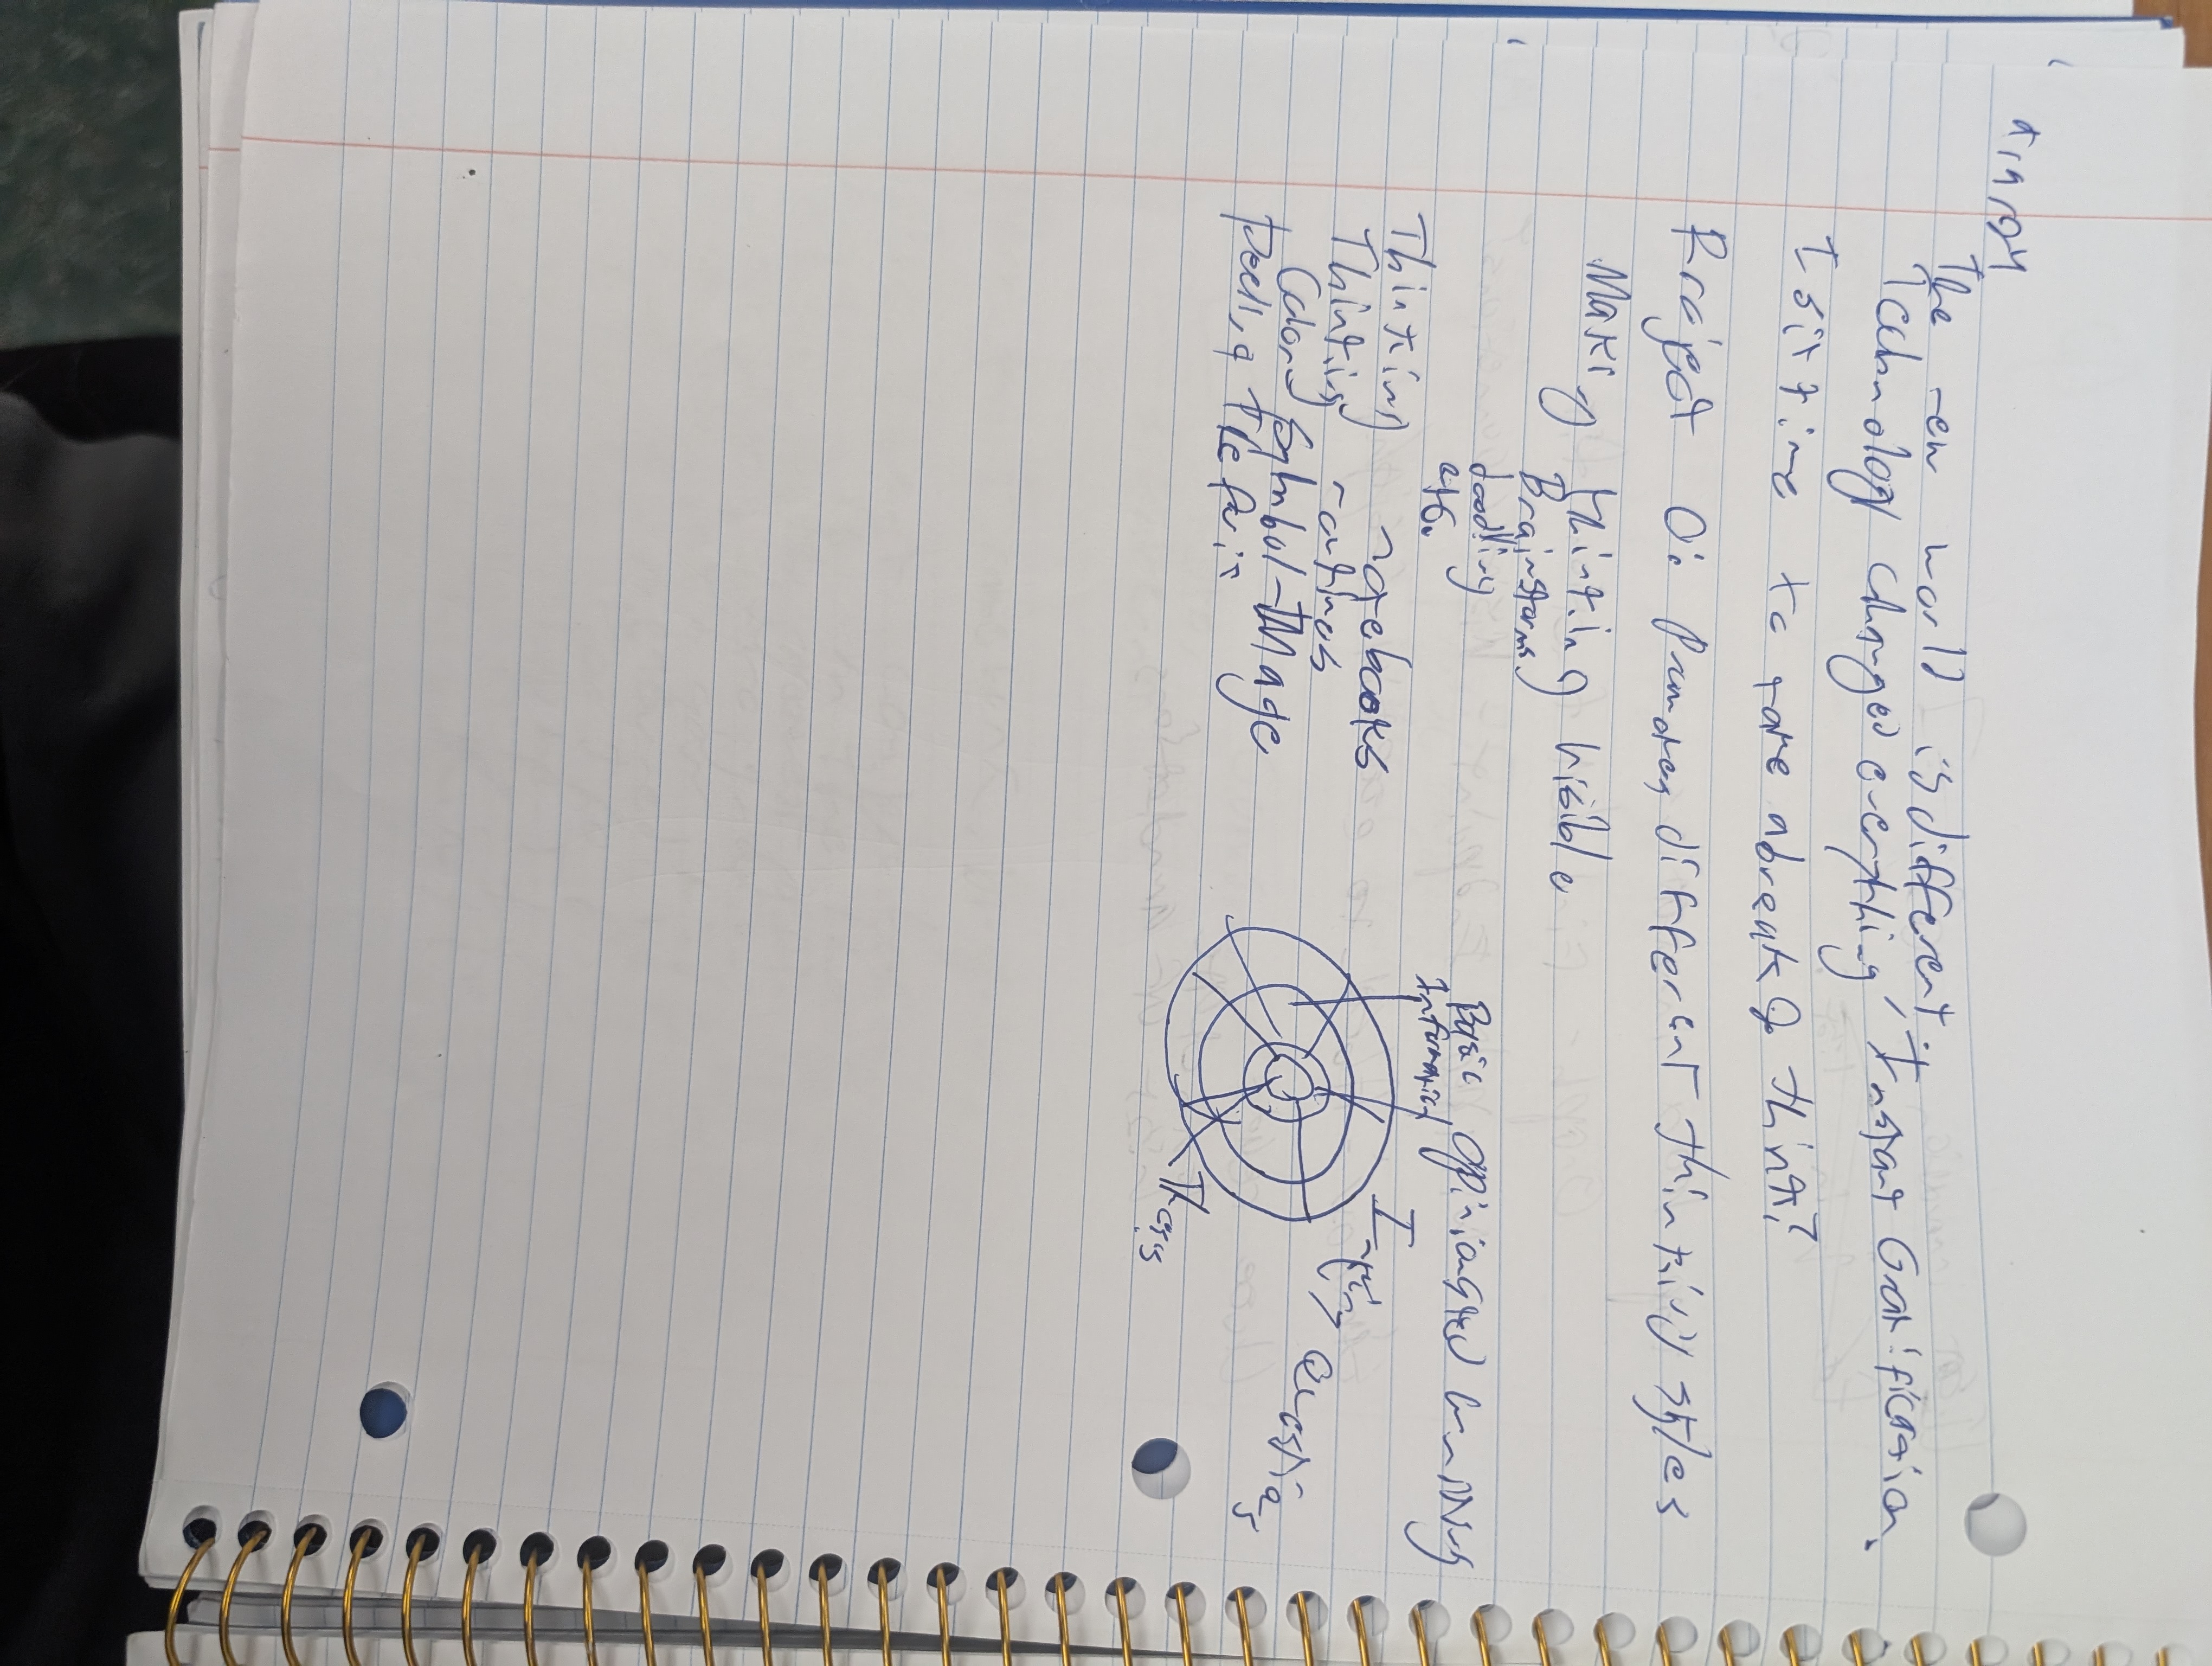 The new world is different.
Technology changed everything, Instant Gratification.
Is it time to take a break & think?
Project 0: Promotes different thinking styles
Making thinking visible
Brainstorms
doodling
etc.
Thinking notebooks
Thinking routines
Color-Symbol-Image
Peeling The fruit
Basic
Information
opinionated
Inquiry Questions
Thesis